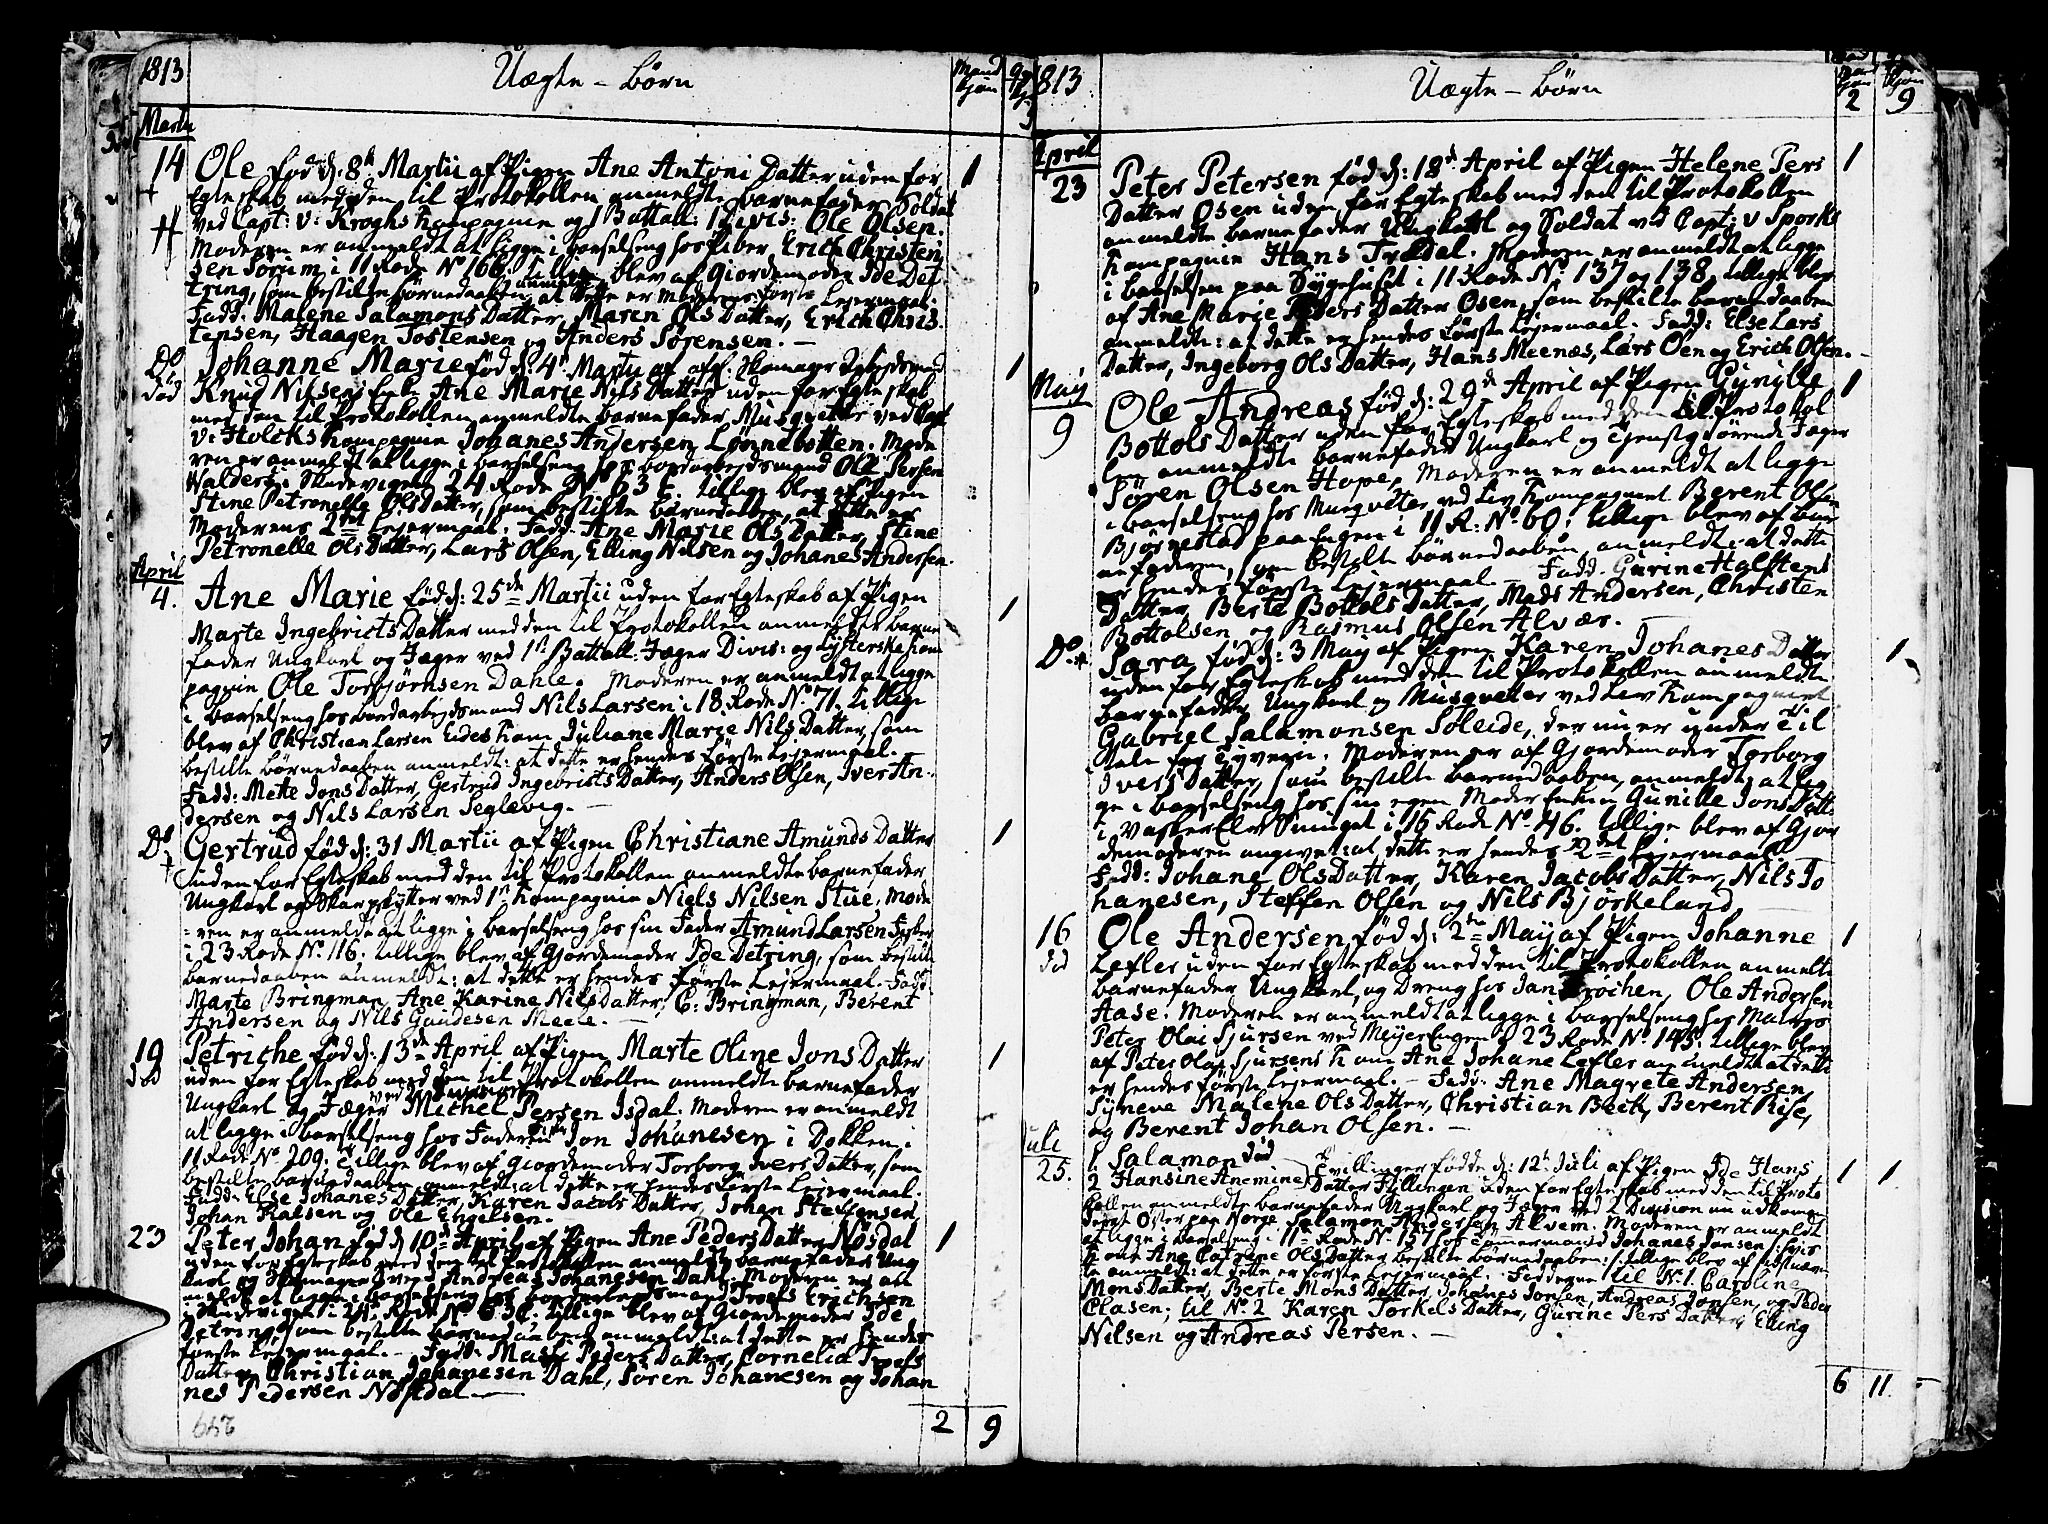 1813 Uægte - Børn Mand kjøn
Martii
14 Ole fød d: 8de Martii af Pigen Ane Antoni Datter uden for 1
Egteskab med den til Protokollen anmeldte barnefader Soldat
ved Capt: v: Kroghs Kompagnie og 1 Battall: 1 Divis: Ole Olsen.
Moderen er anmeldt at ligge i barselseng hos Fisker Erich Christen
sen Sørum i 11 Rode No 166. tillige blev af Giordemoder Ide Det
tring, som bestilte børnedaaben anmeldt at dette er Moderens første Lejermaal.
Fadd: Malene Salamons Datter, Maren Ols Datter, Erich Chris
tensen, Haagen Tostensen og Anders Sørensen. —
Do Johanne Marie fød d: 4de Martii af afg: Skomager 1
død Knud Nilsens Enke Ane Marie Nils Datter uden for Egteskab
med den til Protokollen anmeldte barnefader Musqvetter ved Capt
v: Holcks Kompagnie Johanes Andersen Lønnebotten. Mode
ren er anmeldt at ligge i barselseng hos bordarbejdsmand Ole Persen
Walders i Skudevigen 24 Rode No 63 E. tillige blev af Pigen
Stine Petronelle Ols Datter, som bestilte børnedaaben, at dette er
Moderens 2det Lejermaal. Fadd: Ane Marie Ols Datter, Stine
Petronelle Ols Datter, Lars Olsen, Elling Nilsen og Johanes Andersen.
April
4. Ane Marie fød d: 25de Martii uden for Egteskab af Pigen 1
Marte Ingebricts Datter med den til Protokollen anmeldte barne
fader Ungkarl og Jæger ved 1st Battall: Jæger Divis: og Lysterske Kom
pagnie Ole Torbjørnsen Dahle. Moderen er anmeldt at ligge
i barselseng hos bordarbejdsmand Nils Larsen i 18 Rode No 71. tillige
blev af Christian Larsen Eides Kone Juliane Marie Nils Datter, som
bestilte børnedaaben anmeldt: at dette er hendes første Lejermaal.
Fadd: Mette Jons Datter, Gertrud Ingebricts Datter, Anders Olsen, Iver An
dersen og Nils Larsen Seglevig. —
Do Gertrud fød d: 31 Martii af Pigen Christiane Amunds Datter 1
uden for Egteskab med den til Protokollen anmeldte barnefader
Ungkarl og Skarpskytter ved 1st Kompagnie Niels Nilsen Stue. Mode
ren er anmeldt at ligge i barselseng hos sin Fader Amund Larsen Fisker
i 23 Rode No 116. tillige blev af Gjordemoder Ide Detring, som bestilte
barnedaaben anmeldt: at dette er hendes første Lejermaal. Fadd:
Marte Bringman, Ane Karine Nils Datter, C: Bringman, Berent
Andersen og Nils Gundesen Meele. —
19 Petriche fød d: 13de April af Pigen Marte Oline Jons Datter 1
død uden for Egteskab med den til Protokollen anmeldte barnefader
Ungkarl og Jæger ved Michel Persen Isdal. Moderen er anmeldt
at ligge i barselseng hos Faderen Jon Johanesen i Dokken i
11 Rode No 209. tillige blev af Giordemoder Torborg Ivers Datter, som
bestilte barnedaaben anmeldt: at dette er hendes første Lejermaal.
Fadd: Else Johanes Datter, Karen Jacobs Datter, Johan Steffensen
Johan Kalsen og Ole Engelsen.
23 Peter Johan fød d: 10de April af Pigen Ane Peders Datter Nøsdal 1
uden for Egteskab med den til Protokollen anmeldte barnefader Ung
karl og Skomager Svend Andreas Johanesen Dahl. Moderen er an
meldt at ligge i barselseng hos bordarbejdsmand Troels Erichsen
i Skudevigen i 24 Rode No 63 E. tillige blev af Giordemoder Ide
Detring, som bestilte barnedaaben anmeldt: at dette er hendes
første Lejermaal. — Fadd: Peders Datter, Cornelia Troels
Datter, Christian Johanesen Dahl, Søren Johanesen og Johan
nes Pedersen Nøstdal —
2 9
1813 Uægte - Børn 2 9
April
23 Peter Petersen fød d: 18de April af Pigen Helene Pers 1
Datter Osen uden for Egteskab med den til Protokollen
anmeldte barnefader Ungkarl og Soldat ved Capt: v Sporks
Kompagnie Hans Trædal. Moderen er anmeldt at ligge
i barselsen paa Sygehuset i 11 Rode No 137 og 138, tillige blev
af Ane Marie Peders Datter Osen, som bestilte barnedaaben
anmeldt: at dette er hendes første Lejermaal. Fadd: Else Lars
Datter, Ingeborg Ols Datter, Hans Meenæs, Lars Oen og Erich Olsen.
Maij
9 Ole Andreas fød d: 29de April af Pigen Gynille 1
Bottols Datter uden for Egteskab med den til Protokol
len anmeldte barnefader Ungkarl og tjenstgiørende Jæger
Søren Olsen Hope, Moderen er anmeldt at ligge
i barselseng hos Musqveter ved Liv Kompagniet Berent Olsen
Bjørnestad paa Engen i 11 R: No 60. tillige blev af bar
nefaderen, som bestilte børnedaaben, anmeldt: at dette
er hendes første Lejermaal — Fadd. Gurine Halstens
Datter, Berte Bottols Datter, Mads Andersen, Christen
Bottolsen og Rasmus Olsen Alvær. —
Do Sara fød d: 3 May af Pigen Karen Johanes Datter 1
uden for Egteskab med den til Protokollen anmeldte
barnefader Ungkarl og Musqveter ved Liv Kompagniet
Gabriel Salamonsen Soleide, der nu er under Til
tale for Tyverie. Moderen er af Gjordemoder Torborg
Ivers Datter, som bestilte barnedaaben, anmeldt: at lig
ge i barselseng hos sin egen Moder Enken Gunille Jons Datter
i Vasker Elv Smuget i 16 Rode No 46. tillige blev af Gjor
demoderen angivet: at dette er hendes 2det Lejermaal
Fadd: Johane Ols Datter, Karen Jacobs Datter, Nils Jo
hanesen, Steffen Olsen og Nils Bjørkeland. —
16 Ole Andersen fød d: 2den Maij af Pigen Johanne 1
død Lefler uden for Egteskab med den til Protokollen anmelte
barnefader Ungkarl, og Dreng hos Jan Krøchen, Ole Andersen
Aase. Moderen er anmeldt at ligge i barselseng hos
Peter Olai Sjursen ved Meyer Engen i 23 Rode No 145. tillige blev
af Peter Olai Sjursens Kone Ane Johane Lefler anmeldt at dette
er hendes første Lejermaal. — Fadd: Ane Magrete Andersen,
Syneve Malene Ols Datter, Christian Beck, Berent Rise,
og Berent Johan Olsen. —
Juli
25. 1 Salamon død Tvillinger fødde d: 12te Juli af Pigen Ide Hans 1 1
2 Hansine Anemine Datter Fillingen uden for Egteskab med den til Proto
kollen anmeldte barnefader Ungkarl og Jæger ved 2 Division nu udkomman
deret Øster paa Norge Salamon Andersen Alvem. Moderen er anmeldt
at ligge i barselseng i 11te Rode No 157 hos Tømermand Johanes Jonsen, hvis
Kone Ane Catrine Ols Datter bestilte børnedaaben. tillige blev af
te anmeldt: at dette er første Lejermaal. Faddrene til No 1. Caroline
Mons Datter, Berte Mons Datter, Johanes Jonsen, Andreas Jonsen, og Peder
Clasen; til No 2 Karen Torkels Datter, Gurine Pers Datter, Elling
Nilsen og Andreas Persen. —
6 11